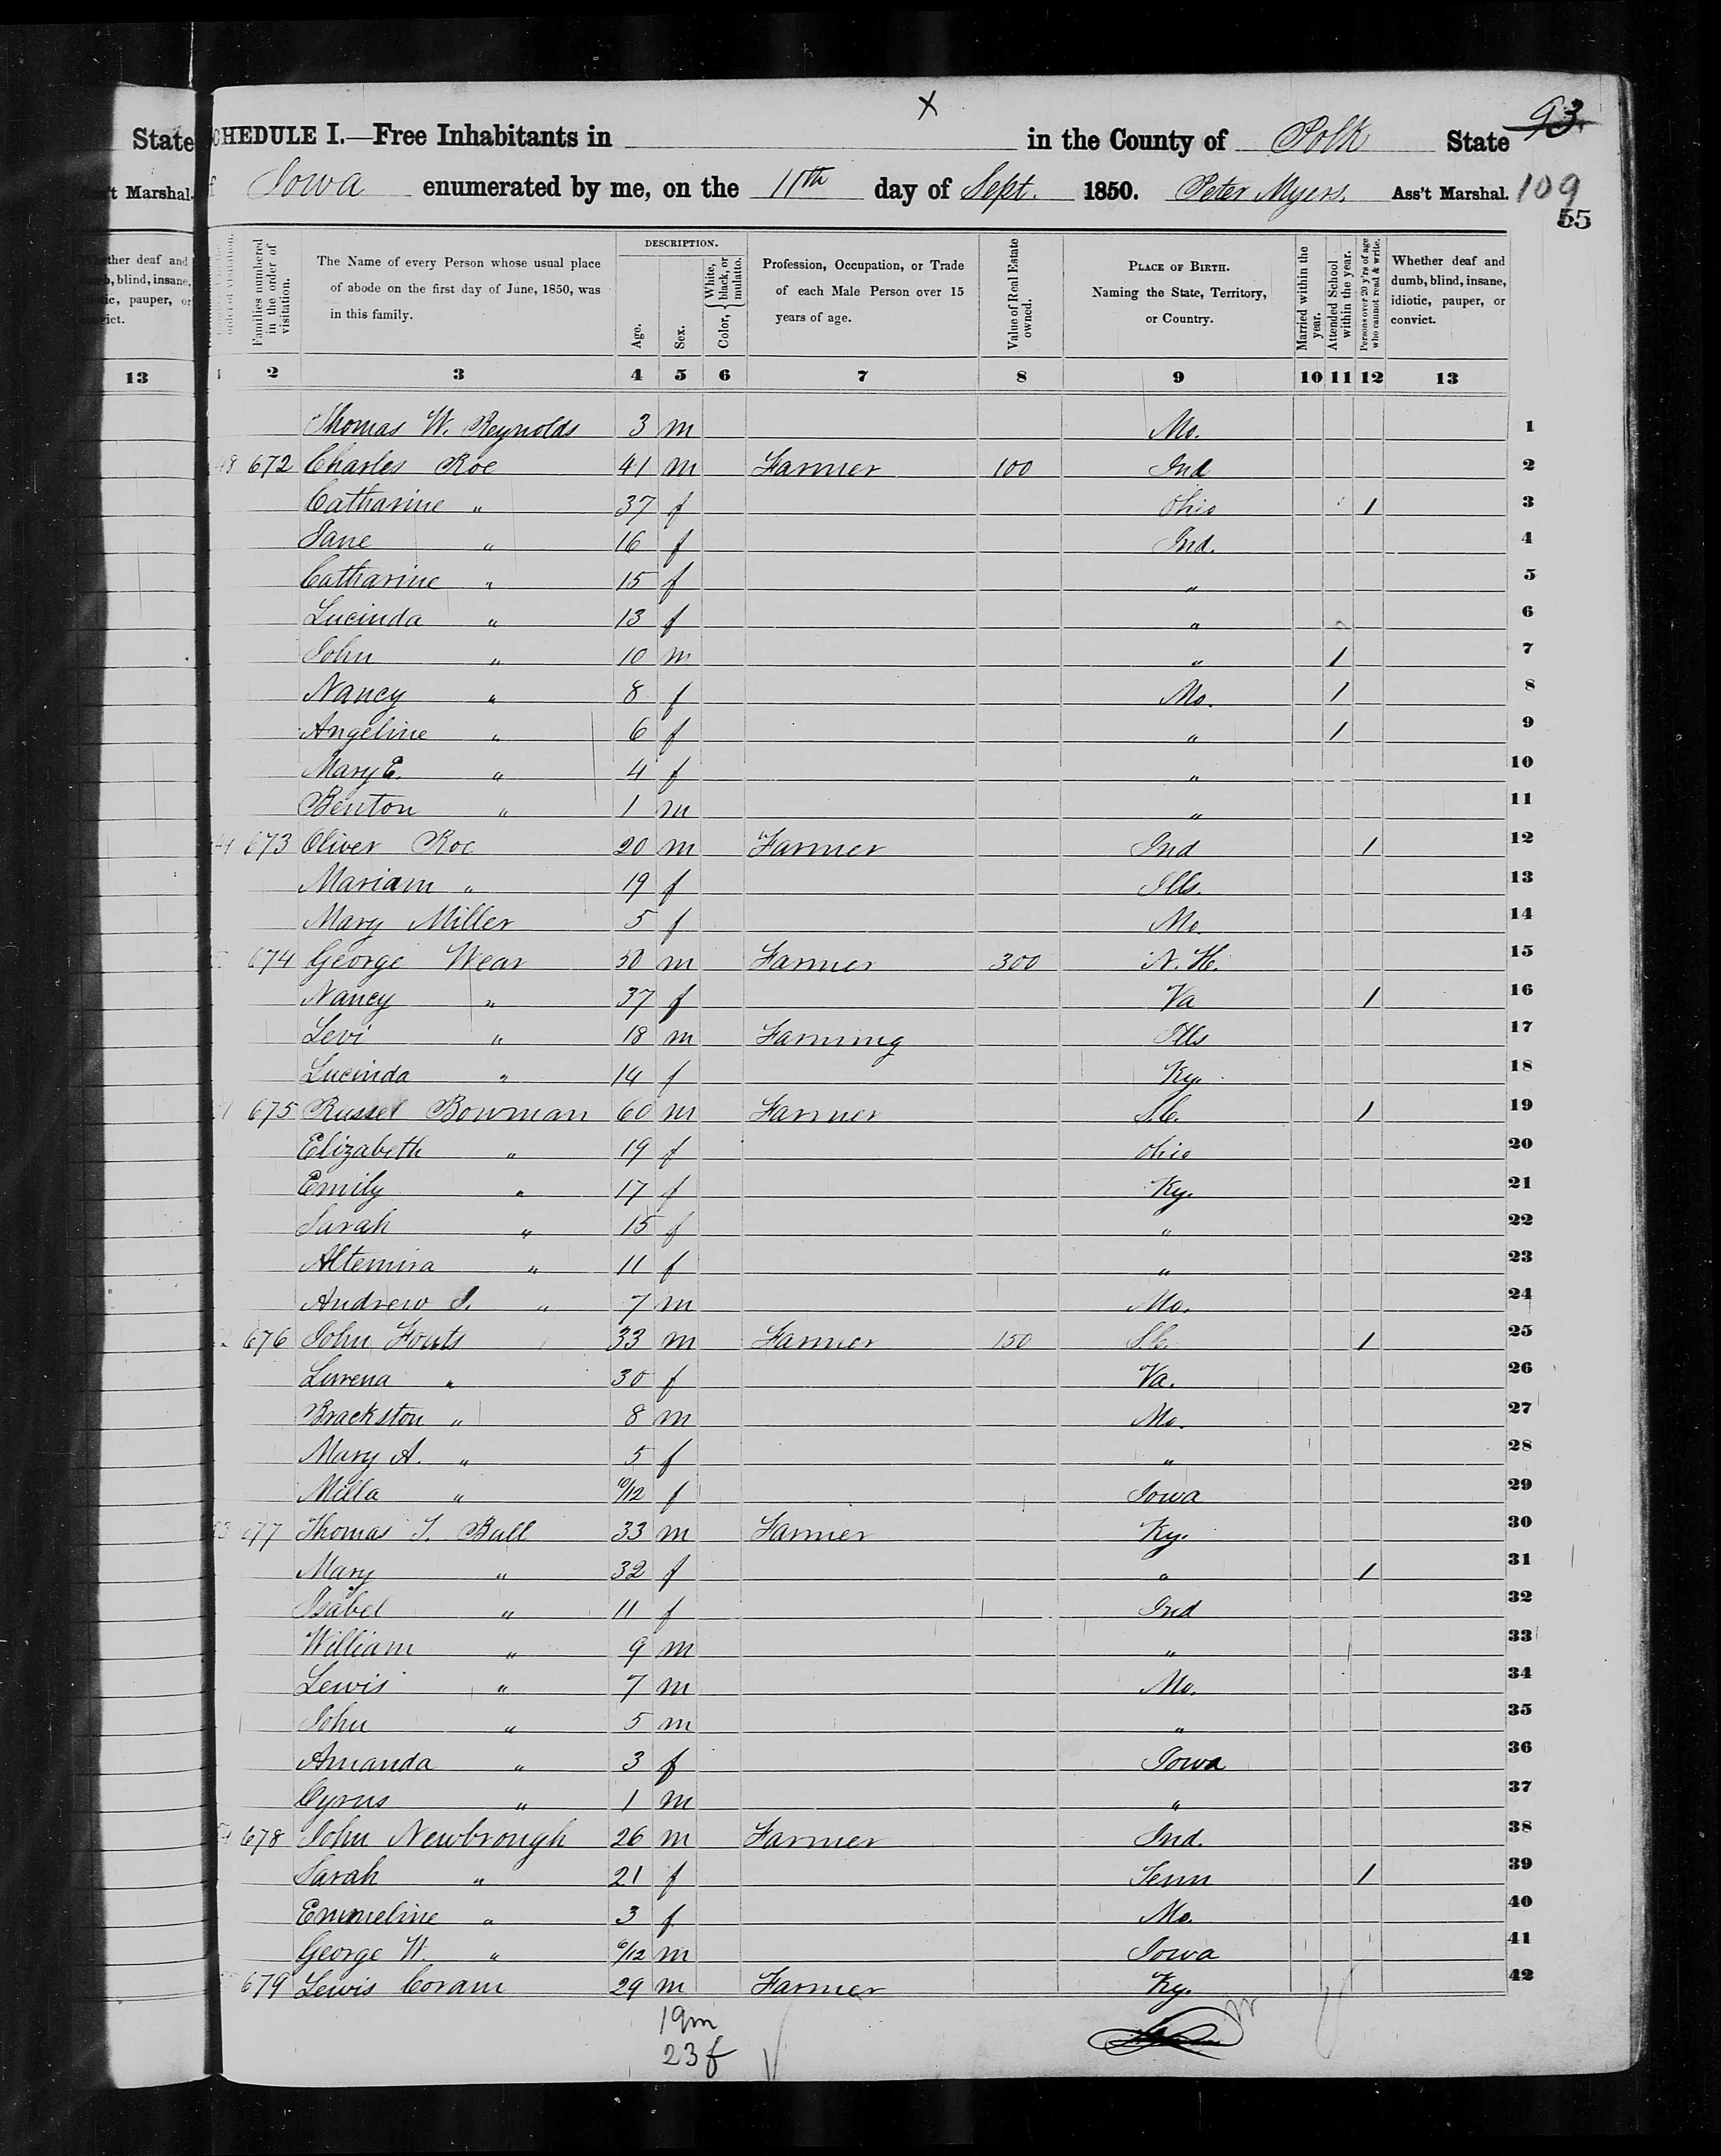 X
93
State SCHEDULE I.—Free Inhabitants in in the County of Polk State
Ass't Marshal. of Iowa enumerated by me, on the 11th day of Sept. 1850. Peter Myers. Ass't Marshal. 109
55
Whether deaf and dumb, blind, insane, idiotic, pauper, or convict.
order of visitation.
Families numbered in the order of visitation.
The Name of every Person whose usual place of abode on the first day of June, 1850, was in this family.
DESCRIPTION.
Age.
Sex.
Color, { White, black, or mulatto.
Profession, Occupation, or Trade of each Male Person over 15 years of age.
Value of Real Estate owned.
PLACE OF BIRTH. Naming the State, Territory, or Country.
Married within the year.
Attended School within the year.
Persons over 20 y'rs of age who cannot read & write.
Whether deaf and dumb, blind, insane, idiotic, pauper, or convict.
13 1 2 3 4 5 6 7 8 9 10 11 12 13
Thomas W. Reynolds 3 m Mo. 1
672 Charles Roe 41 m Farmer 100 Ind 2
Catharine " 37 f Ohio 1 3
Jane " 16 f Ind. 4
Catharine " 15 f " 5
Lucinda " 13 f " 6
John " 10 m " 1 7
Nancy " 8 f Mo. 1 8
Angeline " 6 f " 1 9
Mary E. " 4 f " 10
Benton " 1 m " 11
673 Oliver Roe 20 m Farmer Ind 1 12
Mariam " 19 f Ills. 13
Mary Miller 5 f Mo. 14
674 George Wear 50 m Farmer 300 N. H. 15
Nancy " 37 f Va 1 16
Levi " 18 m Farming Ills 17
Lucinda " 14 f Ky. 18
675 Russel Bowman 60 m Farmer S.C. 1 19
Elizabeth " 19 f Ohio 20
Emily " 17 f Ky. 21
Sarah " 15 f " 22
Altemira " 11 f " 23
Andrew J. " 7 m Mo. 24
676 John Fouts 33 m Farmer 150 S.C. 1 25
Lurena " 30 f Va. 26
Brackston " 8 m Mo. 27
Mary A. " 5 f " 28
Milla " /12 f Iowa 29
677 Thomas J. Ball 33 m Farmer Ky. 30
Mary " 32 f " 1 31
Isabel " 11 f Ind 32
William " 9 m " 33
Lewis " 7 m Mo. 34
John " 5 m " 35
Amanda " 3 f Iowa 36
Cyrus " 1 m " 37
678 John Newbrough 26 m Farmer Ind. 38
Sarah " 21 f Tenn 1 39
Emmeline " 3 f Mo. 40
George W. " 6/12 m Iowa 41
679 Lewis Coram 29 m Farmer Ky. 42
19m
23f